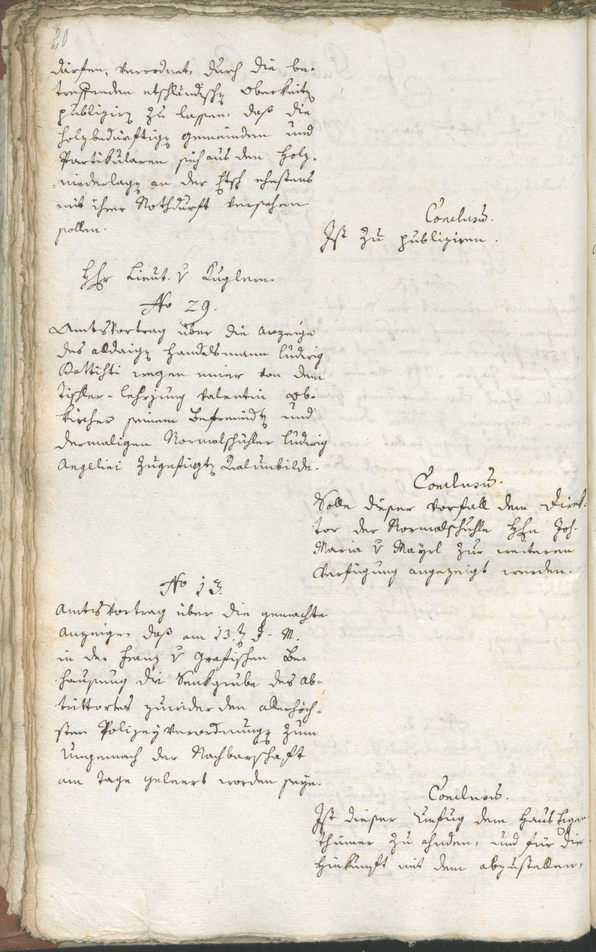 20
dürfen, verordnet, durch die be-
treffenden etschländischen Obrkeiten
publiziren zu lassen, daß die
holzbedürftigen Gemeinden und
Partikularen sich aus den Holz-
niederlagen an der Etsch ehestens
mit ihrer Nothdurft versehen
sollen.
Conclusum.
Ist zu publiziren.
Hhr Lieut. v Kuglern.
No 29.
Amtsvortrag über die Anzeige
des alldaigen Handelsmann Ludwig
wegen einer von dem
Tischler-Lehrjung Valentin Ob-
kircher seinem Befreundten und
dermaligen Normalschüler Ludwig
Angelini zugefügten Realunbilde.
Conclusum.
Solle dieser Vorfall dem Direk-
tor der Normalschuhle Hhn Joh.
Maria v Mayrl zur weiteren
Verfügung angezeigt werden.
No 13.
Amtsvortrag über die gemachte
Anzeige, daß am 13.ten d. M.
in der Franz v Grafischen Be-
hausung die Senkgrube des Ab-
trittortes zuwider den allerhöch-
sten Polizeyverordnungen zum
Ungemach der Nachbarschaft
am Tage geleert worden seye.
Conclusum.
Ist dieser Unfug dem Hauseigen-
thümer zu ahnden, und für die
Hinkunft mit dem abzustellen,